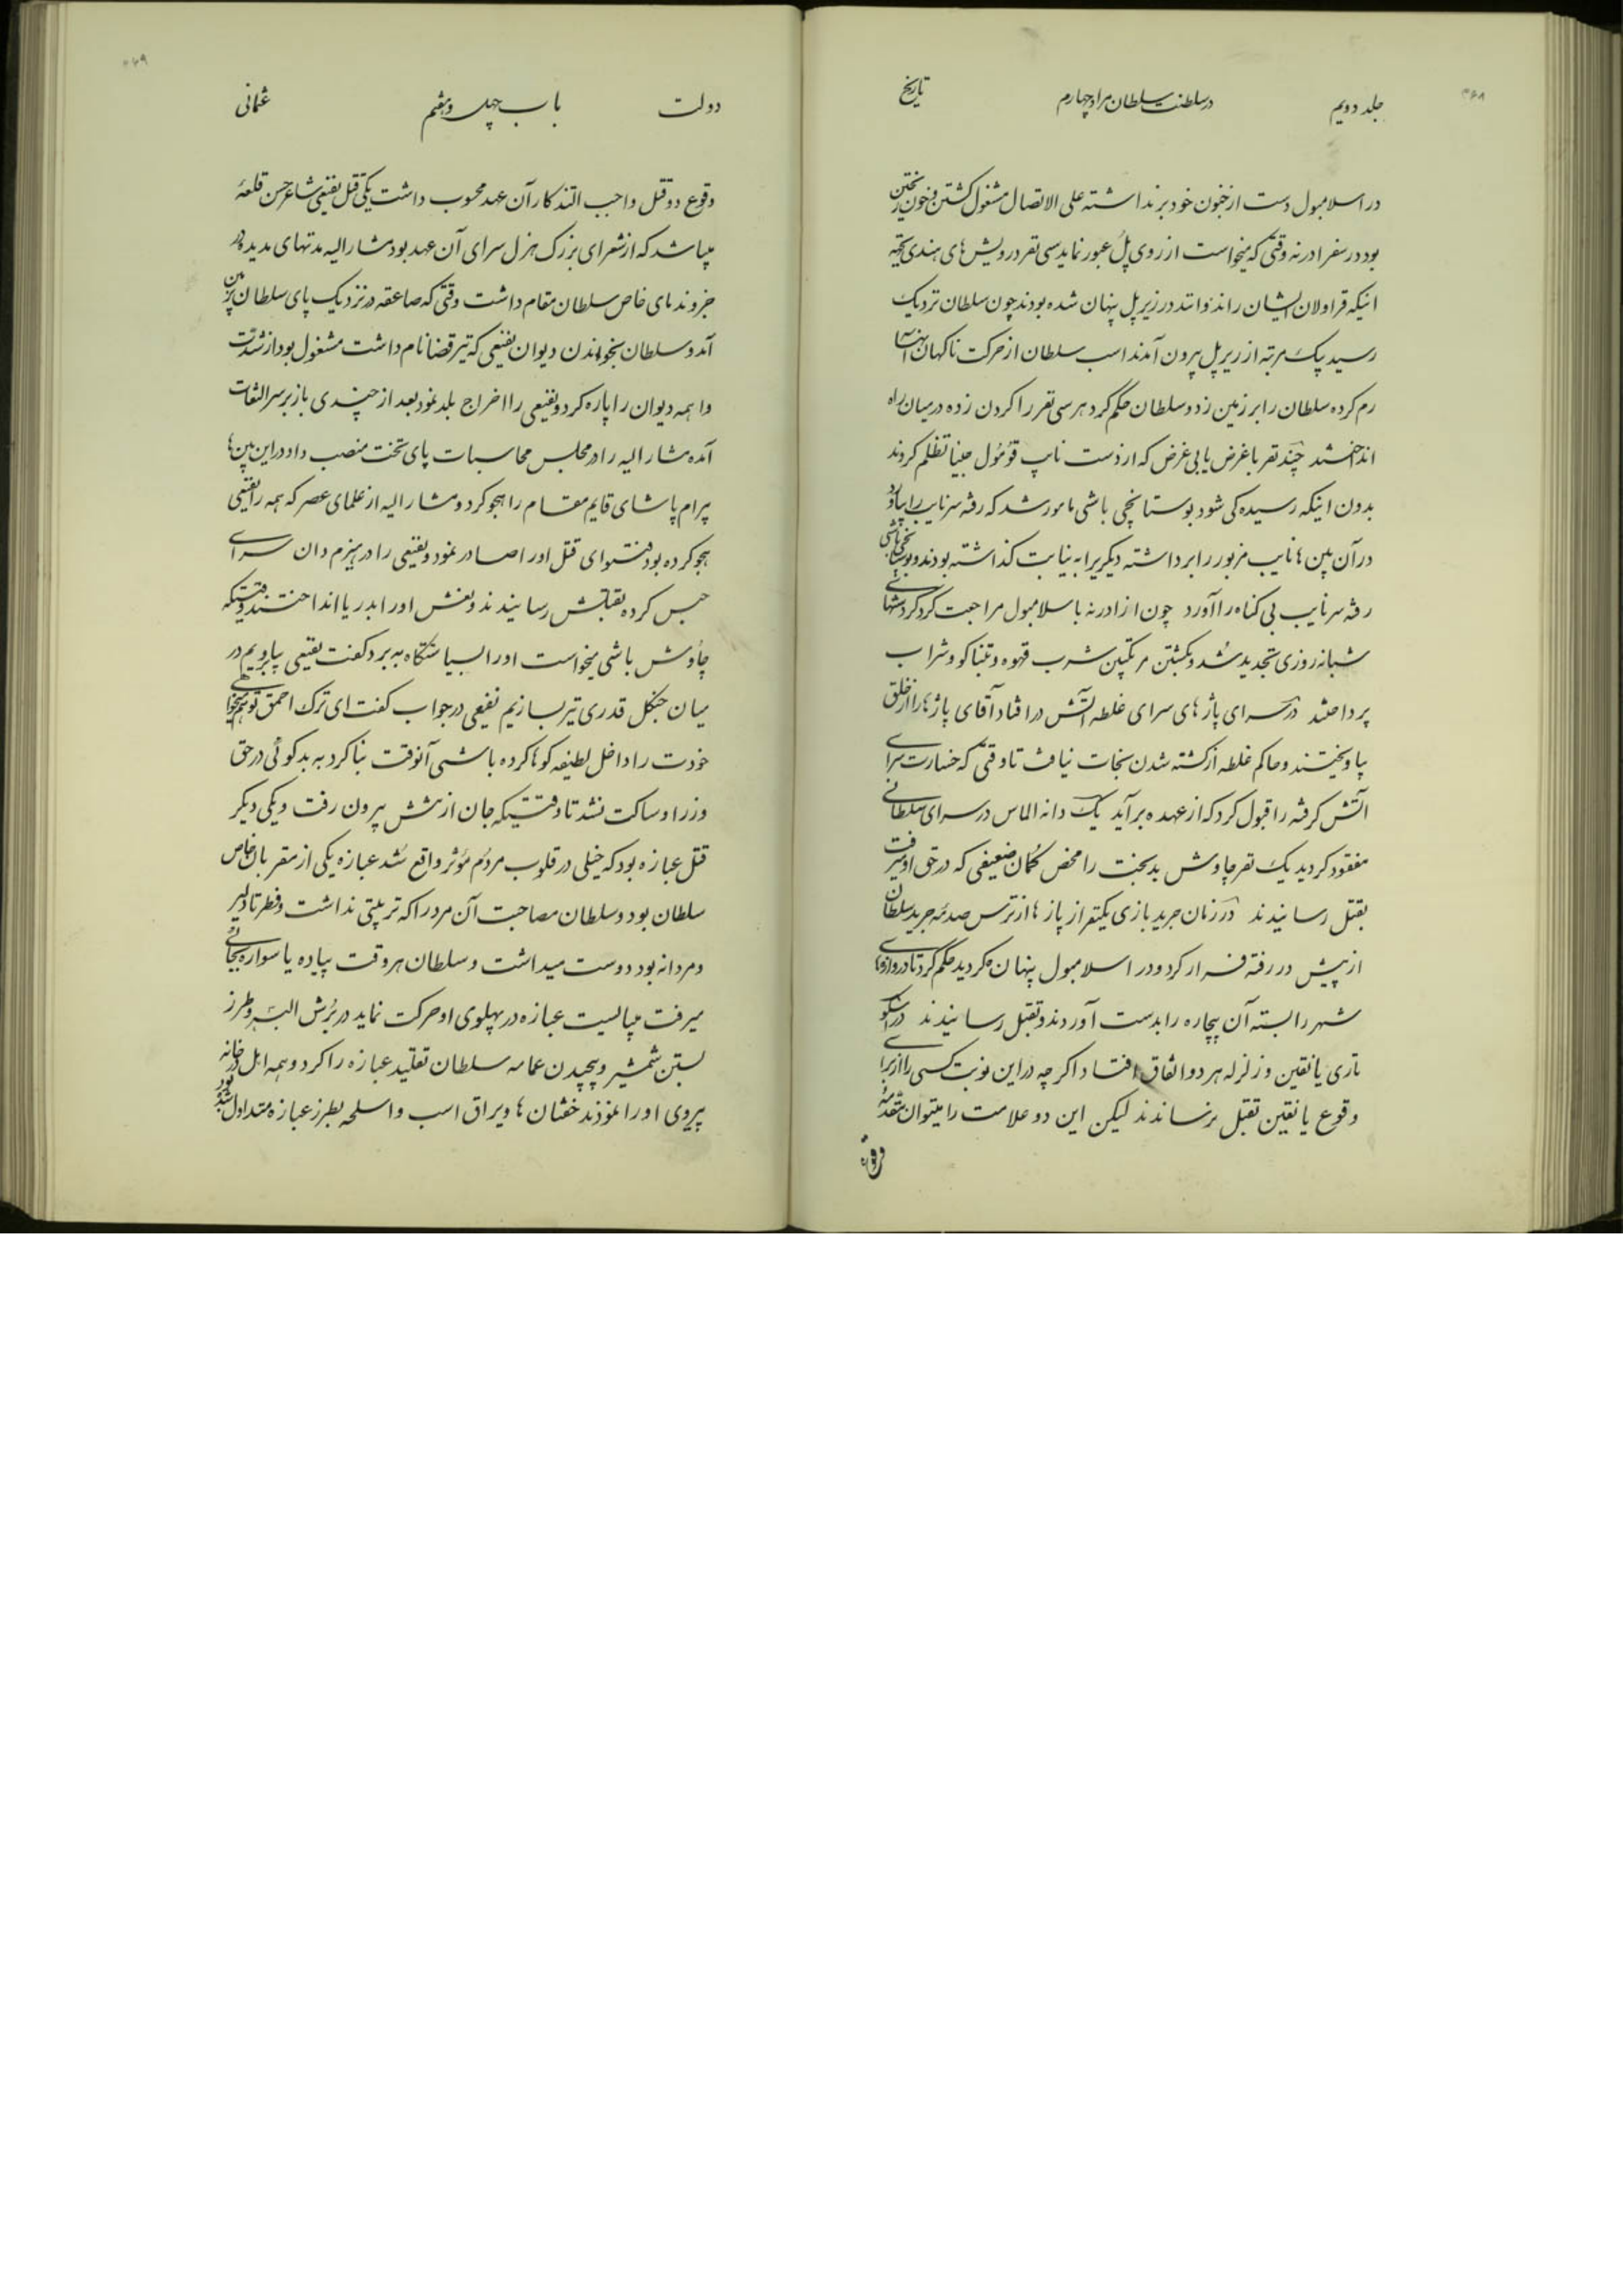 ۴۶۸
جلد دویم
در سلطنت سلطان مراد چهارم
تاریخ
در اسلامبول دست از خون خود برنداشته علی الاتصال مشغول کشتن و خون ریختن
بود در سفر ادرنه وقتی که میخواست از روی پل عبور نماید سی نفر درویش های هندی بجهة
اینکه قراولان ایشان را ندوانند در زیر پل پنهان شده بودند چون سلطان نزدیک
رسید یک مرتبه از زیر پل بیرون آمدند اسب سلطان از حرکت ناگهان اینها
رم کرده سلطان را بر زمین زد و سلطان حکم کرد هر سی نفر را گردن زده در میان راه
انداختند چند نفر با غرض یا بی غرض که از دست نایب قومول جنیا تظلم کردند
بدون اینکه رسیده کی شود بوستانچی باشی مامور شد که رفته سر نایب را بیاورد
در آن بین ها نایب مزبور را برداشته دیگریرا به نیابت گذاشته بودند و بوستانچی باشی
رفته سر نایب بی گناه را آورد چون از ادرنه با سلامبول مراجعت کرد گردشهای
شبانه روزی تجدید شد و بکشتن مرتکبین شرب قهوه و تنباکو و شراب
پرداختند در سرای پاژ های سرای غلطه آتش در افتاد آقای پاژها را از حلق
بیاویختند و حاکم غلطه از کشته شدن نجات نیافت تا وقتی که خسارت سرای
آتش گرفته را قبول کرد که از عهده برآید یک دانه الماس در سرای سلطانی
مفقود گردید یک نفر چاوش بدبخت را محض گمان ضعیفی که در حق او میرفت
بقتل رسانیدند در زمان جرید بازی یکنفر از پاژ ها از ترس صدمه جرید سلطان
از پیش در رفته فرار کرد و در اسلامبول پنهان گردید حکم کرد تا دروازهای
شهر را بسته آن بیچاره را بدست آوردند و بقتل رسانیدند در اسکو
تاری یانقین و زلزله هر دو اتفاق افتاد اگرچه در این نوبت کسی را از برای
وقوع یانقین بقتل نرساندند لیکن این دو علامت را میتوان مقدمه
وقوع
۴۶۹
دولت
باب چهل و هفتم
عثمانی
وقوع دو قتل واجب التذکار آن عهد محسوب داشت یکی قتل نفیعی شاعر حسن قلعه
میباشد که از شعرای بزرک هزل سرای آن عهد بود مشارالیه مدتهای مدید در
جزو ندمای خاص سلطان مقام داشت وقتی که صاعقه در نزدیک پای سلطان بزمین
آمد و سلطان بخواندن دیوان نفیعی که تیر قضا نام داشت مشغول بود از شدت
واهمه دیوان را پاره کرد و نفیعی را اخراج بلد نمود بعد از چندی باز بر سر التفات
آمده مشارالیه را در مجلس محاسبات پای تخت منصب داد در این بین ها
بیرام پاشای قایم مقام را هجو کرد و مشارالیه از علمای عصر که همه را نفیعی
هجو کرده بود فتوای قتل او را صادر نمود و نفیعی را در هیزم دان سرای
حبس کرده بقتلش رسانیدند و نعش او را بدریا انداختند وقتیکه
چاوش باشی میخواست او را بسیاستگاه ببرد گفت نفیعی بیا برویم در
میان جنگل قدری تیر بسازیم نفیعی در جواب گفت ای ترک احمق تو هم میخواهی
خودت را داخل لطیفه گوها کرده باشی آنوقت بنا کرد به بدگوئی در حق
وزرا و ساکت نشد تا وقتیکه جان از تنش بیرون رفت و یکی دیگر
قتل عبازه بود که خیلی در قلوب مردم مؤثر واقع شد عبازه یکی از مقربان خاص
سلطان بود و سلطان مصاحبت آن مرد را که تربیتی نداشت و فطرتا دلیر
و مردانه بود دوست میداشت و سلطان هر وقت پیاده یا سواره بجائی
میرفت میبایست عبازه در پهلوی او حرکت نماید در برش البسه و طرز
بستن شمشیر و پیچیدن عمامه سلطان تقلید عبازه را کرد و همه اهل در خانه
پیروی او را نمودند خفتان ها و یراق اسب و اسلحه بطرز عبازه متداول شده بود